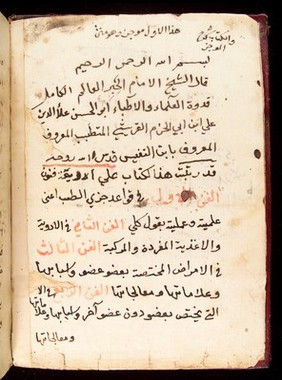 هذا الاول موجز
بسم الله الرحمن الرحيم
قال الشيخ الامام الحكيم العالم الكامل
قدوة العلماء والاطباء ابو الحسن علاء الدين
علي ابن ابي الحزم القرشي المتطبب المعروف
المعروف بابن النفيس قدس الله روحه
قد رتبت هذا كتاب علي اربعة فنون
الفن الاول في قواعد جزئي الطب اعني
علميته وعمليته بقول كلي الفن الثاني في الادوية
والاغذية المفردة والمركبة الفن الثالث
في الامراض المختصة بعضو عضو واسبابها
وعلاماتها ومعالجاتها الفن الرابع في الامراض
التي لا يختص بعضو دون عضو آخر واسبابها وعلاماتها
ومعالجاتها